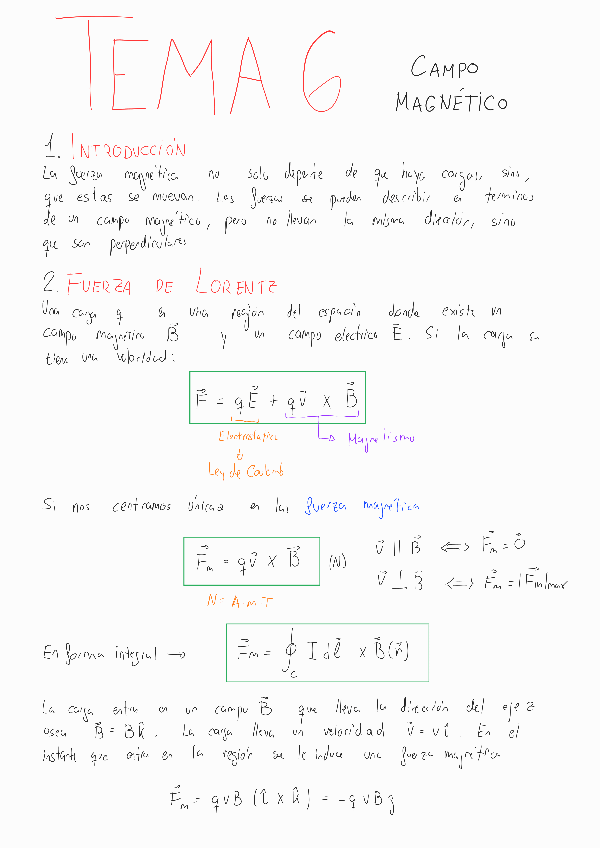 TEMA 6
CAMPO
MAGNÉTICO
1. INTRODUCCIÓN
La fuerza magnética no solo depende de que haya cargas, sino,
que estas se muevan. Las fuerzas se pueden describir en terminos
de un campo magnético, pero no llevan la misma direccion, sino
que son perpendiculares
2. FUERZA DE LORENTZ
Una carga q en una region del espacio donde existe un
campo magnetico B⃗ y un campo electrico E⃗. Si la carga
tiene una velocidad:
F⃗ = qE⃗ + qv⃗ x B⃗
Electrostatica
→ Magnetismo
↓
Ley de Coulomb
Si nos centramos en la fuerza magnética
F⃗m = qv⃗ x B⃗ (N)
v⃗ || B⃗ ⟺ F⃗m = 0⃗
v⃗ ⊥ B⃗ ⟺ F⃗m = |F⃗m|max
N = A m T
En forma integral → F⃗m = ∮c I dl⃗ x B⃗(r⃗)
La carga entra en un campo B⃗ que lleva la direccion del eje z
osea B⃗ = Bk̂. La carga lleva un velocidad v⃗ = vî. En el
instante que entra en la región se le induce una fuerza magnetica
F⃗m = qvB (î x k̂) = -qvBĵ